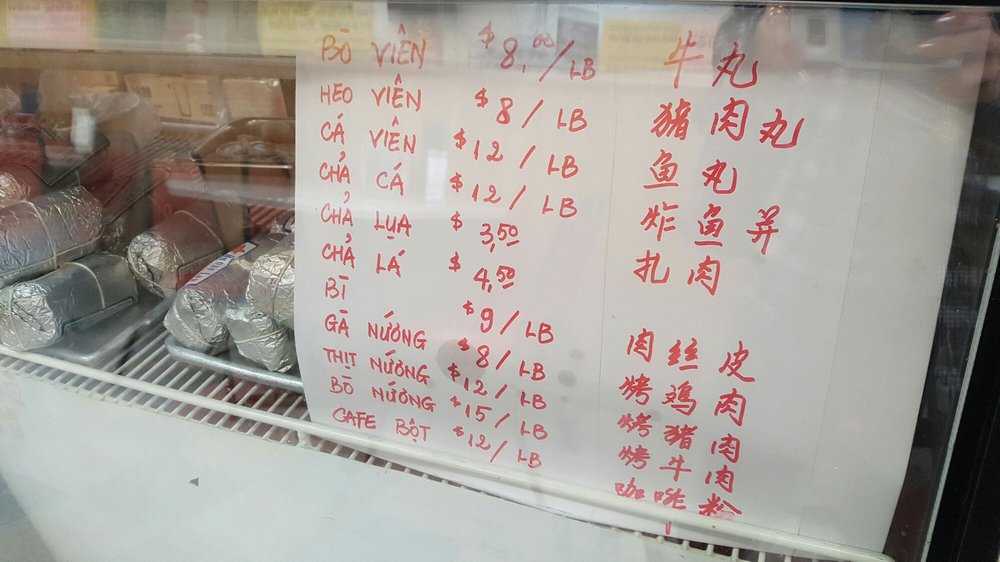 BÒ VIÊN $8.00/LB 牛丸
HEO VIÊN $8/LB 猪肉丸
CÁ VIÊN $12/LB 鱼丸
CHẢ CÁ $12/LB 炸鱼并
CHẢ LỤA $3.50 扎肉
CHẢ LÁ $4.50
BÌ $9/LB 肉丝皮
GÀ NƯỚNG $8/LB 烤鸡肉
THỊT NƯỚNG $12/LB 烤猪肉
BÒ NƯỚNG $15/LB 烤牛肉
CAFE BỘT $12/LB 咖啡粉